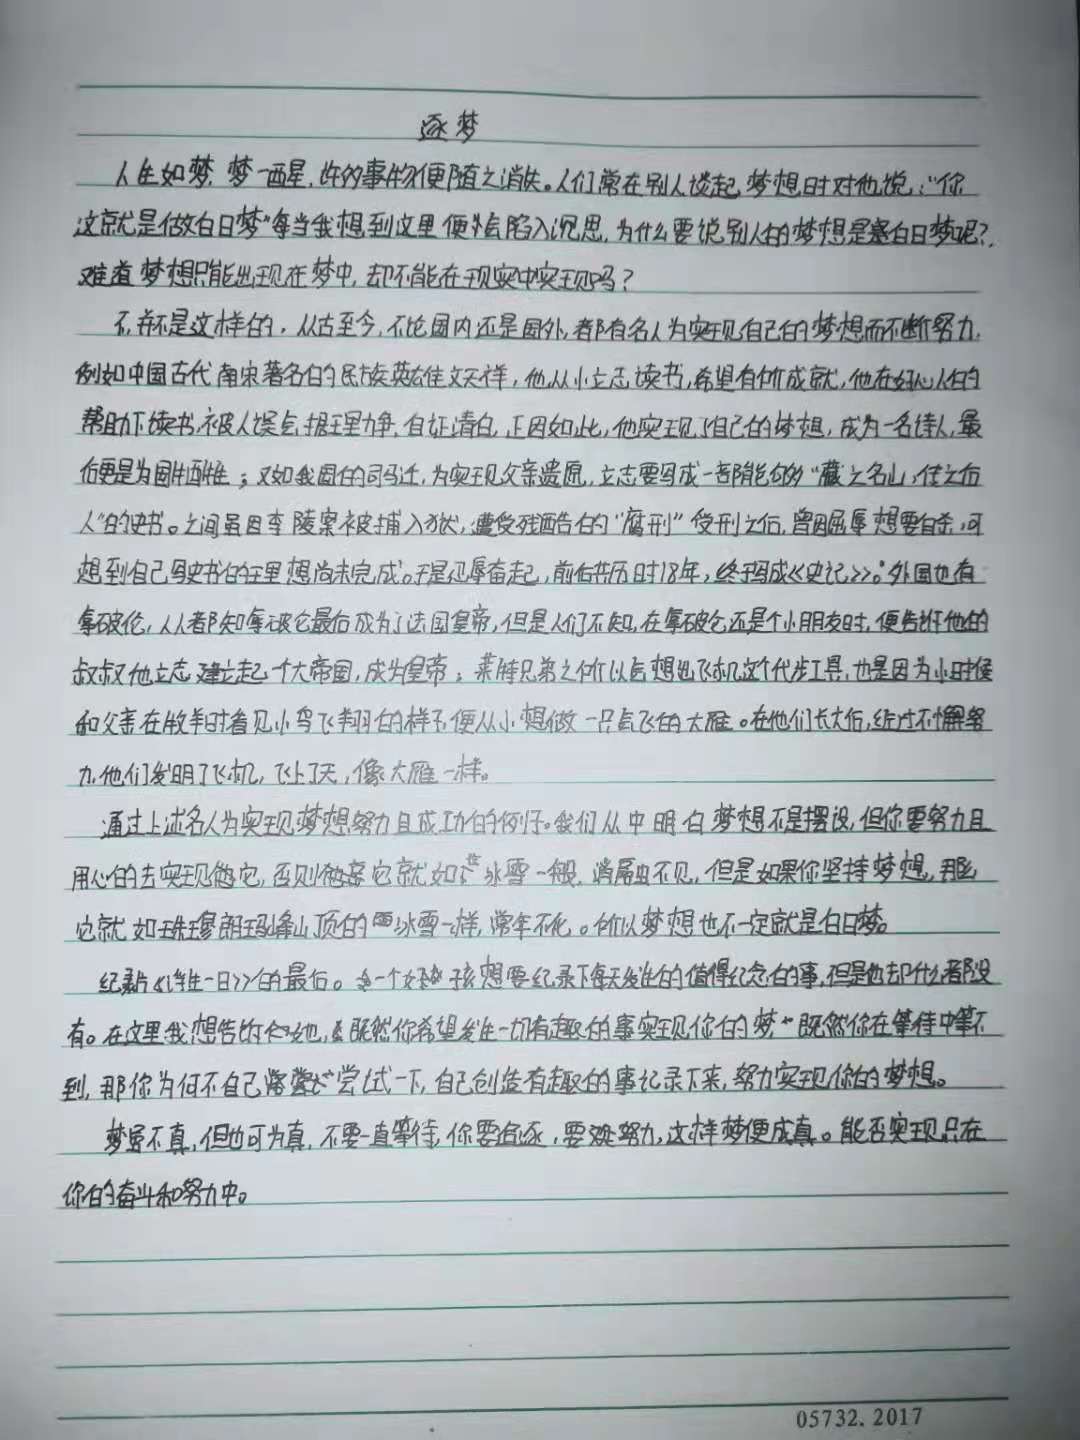 逐梦
人生如梦,梦一醒,许多事物便随之消失。人们常在别人谈起梦想时对他说:“你
这就是做白日梦”每当我想到这里便会陷入沉思,为什么要说别人的梦想是白日梦呢?
难道梦想只能出现在梦中,却不能在现实中实现吗?
不,并不是这样的,从古至今,不论国内还是国外,都有名人为实现自己的梦想而不断努力,
例如中国古代南宋著名的民族英雄文天祥,他从小立志读书,希望有所成就,他在好心人的
帮助下读书,被人误会,据理力争,自证清白,正因如此,他实现了自己的梦想,成为一名诗人,最
后更是为国牺牲;又如我国的司马迁,为实现父亲遗愿,立志要写成一部能够“藏之名山,传之后
人”的史书。之间虽因李陵案被捕入狱,遭受残酷的“腐刑”受刑之后,曾因屈辱想要自杀,可
想到自己写史书的理想尚未完成。于是忍辱奋起,前后共历时18年,终于写成《史记》。外国也有
拿破伦,人人都知拿破仑最后成为了法国皇帝,但是人们不知,在拿破仑还是个小朋友时,便告诉他的
叔叔他立志建立起一个大帝国,成为皇帝;莱特兄弟之所以后想出飞机这个代步工具,也是因为小时候
和父亲在放羊时看见小鸟飞翔的样子,便从小想做一只会飞的大雁。在他们长大后,经过不懈努
力,他们发明了飞机,飞上了天,像大雁一样。
通过上述名人为实现梦想努力且成功的例子。我们从中明白梦想不是摆设,但你要努力且
用心的去实现它,否则它就如冰雪一般,消融不见,但是如果你坚持梦想,那么
它就如珠穆朗玛峰山顶的冰雪一样,常年不化。所以梦想也不一定就是白日梦。
纪录片《浮生一日》的最后。一个女孩想要纪录下每天发生的值得纪念的事,但是她却什么都没
有。在这里我想告诉她,既然你希望发生一切有趣的事实现你的梦,既然你在等待中等不
到,那你为何不自己尝试一下,自己创造有趣的事记录下来,努力实现你的梦想。
梦虽不真,但也可为真,不要一直等待,你要追逐,要努力,这样梦便成真。能否实现只在
你的奋斗和努力中。
05732.2017